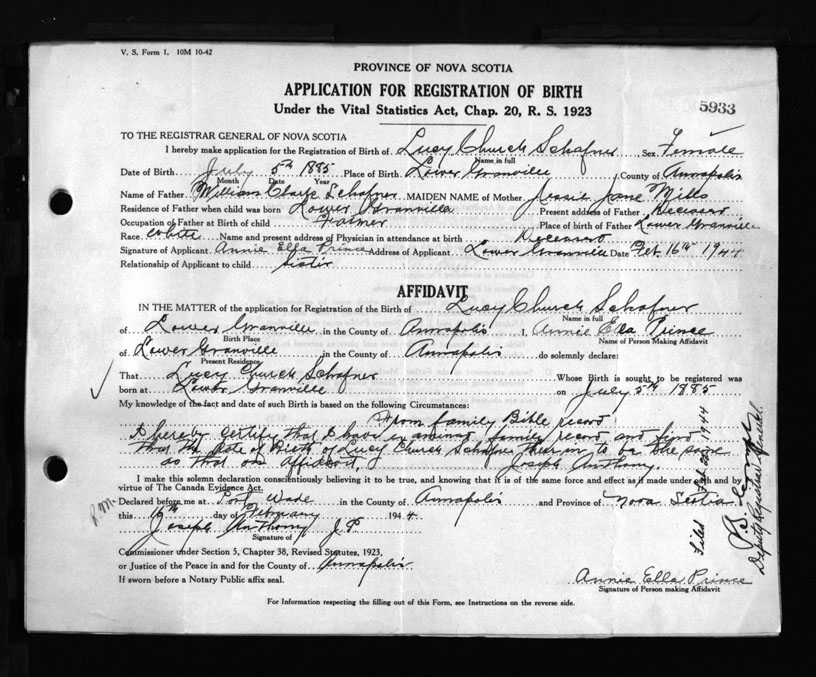 V. S. Form 1. 10M 10-42
PROVINCE OF NOVA SCOTIA
APPLICATION FOR REGISTRATION OF BIRTH
Under the Vital Statistics Act, Chap. 20, R. S. 1923
5933
TO THE REGISTRAR GENERAL OF NOVA SCOTIA
I hereby make application for the Registration of Birth of Lucy Church Schafner, Sex Female
Name in full
Date of Birth July 5th 1885 Place of Birth Lower Granville, County of Annapolis
Month Date Year
Name of Father William Schafner MAIDEN NAME of Mother Jessie Jane Mills
Residence of Father when child was born Lower Granville Present address of Father Deceased
Occupation of Father at Birth of child Farmer Place of birth of Father Lower Granville
Race white Name and present address of Physician in attendance at birth Deceased
Signature of Applicant Annie Ella Prince Address of Applicant Lower Granville Date Feb. 16th 1944
Relationship of Applicant to child sister
AFFIDAVIT
IN THE MATTER of the application for Registration of the Birth of Lucy Church Schafner
Name in full
of Lower Granville in the County of Annapolis I, Annie Ella Prince
Birth Place Name of Person Making Affidavit
of Lower Granville in the County of Annapolis do solemnly declare:
Present Residence
That Lucy Church Schafner Whose Birth is sought to be registered was
born at Lower Granville on July 5th 1885
My knowledge of the fact and date of such Birth is based on the following Circumstances:
From family Bible record
I hereby certify that I have examined family record and find
that the date of Birth of Lucy Church Schafner therein to be the same
as that on Affidavit. Joseph Anthony.
I make this solemn declaration conscientiously believing it to be true, and knowing that it is of the same force and effect as if made under oath and by
virtue of The Canada Evidence Act.
Declared before me at Port Wade in the County of Annapolis and Province of Nova Scotia
this 16th day of February 1944
Joseph Anthony J.P.
Signature of
Commissioner under Section 5, Chapter 38, Revised Statutes, 1923,
or Justice of the Peace in and for the County of Annapolis
If sworn before a Notary Public affix seal.
Annie Ella Prince
Signature of Person making Affidavit
For Information respecting the filling out of this Form, see Instructions on the reverse side.
Filed Feb 1944
Deputy Registrar General.